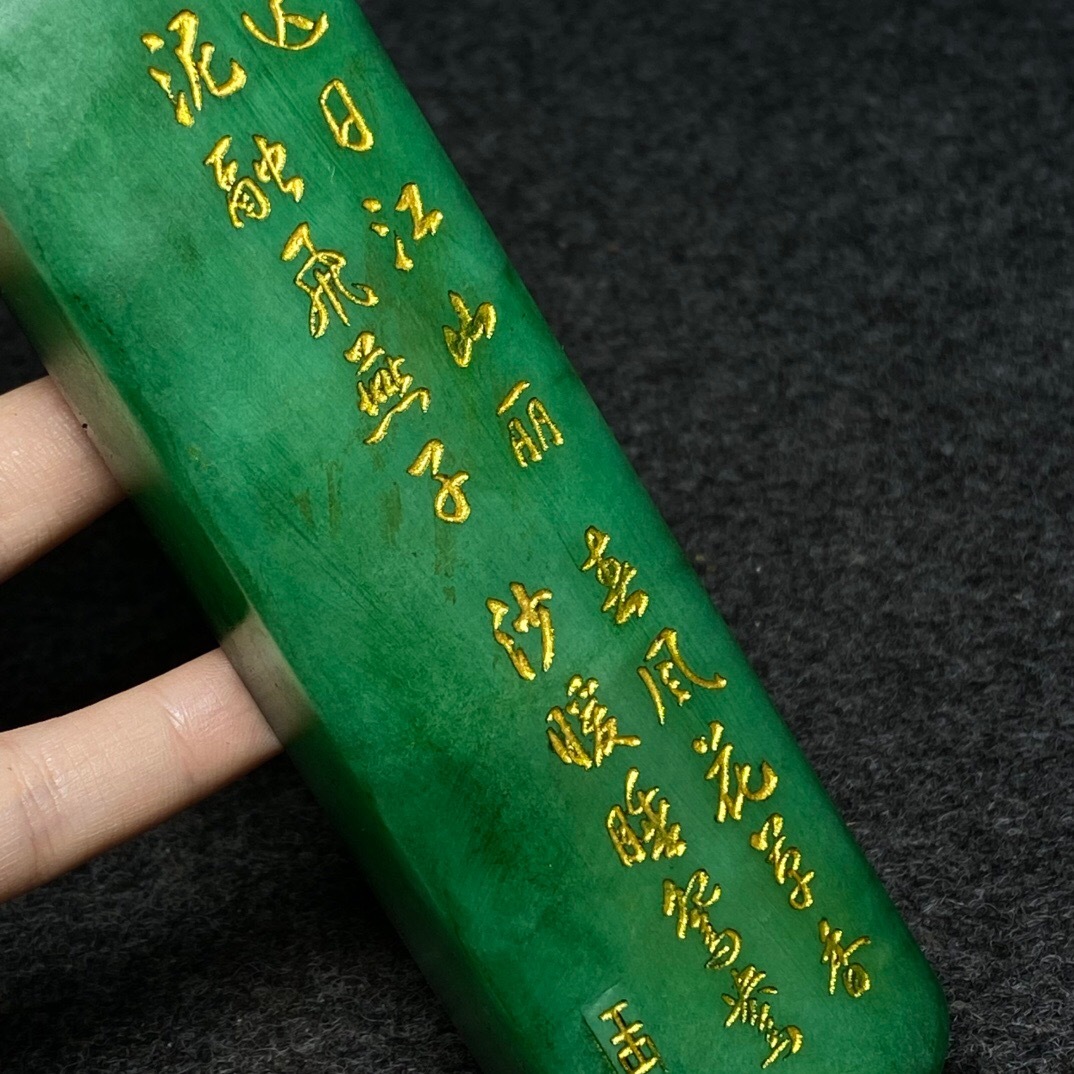 迟日江山丽 春風花草香
泥融飛燕子 沙暖睡鴛鴦